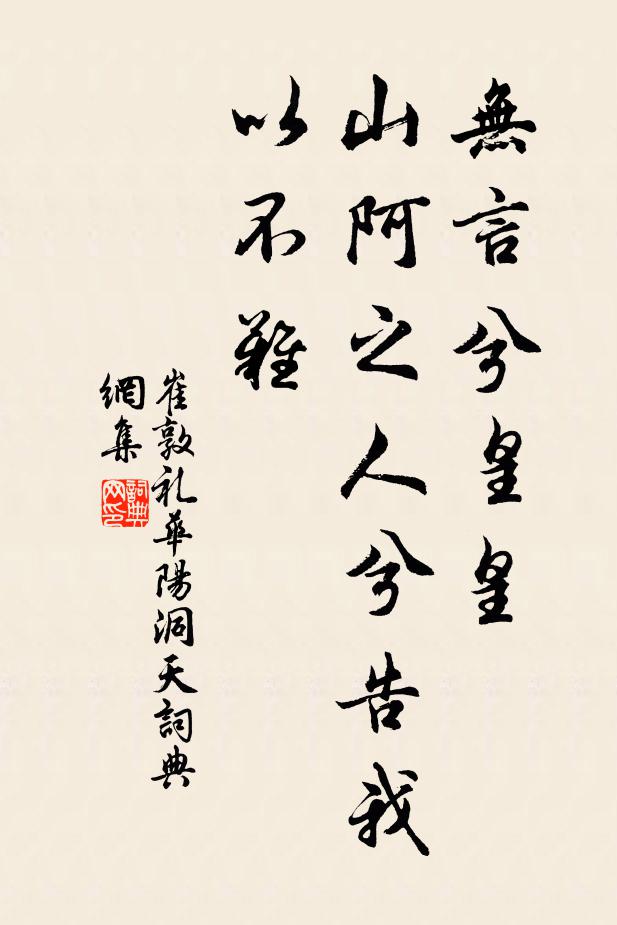 無言兮皇皇
山阿之人兮告我
以不難
崔敦礼華陽洞天詞典
網集
詞典
网印